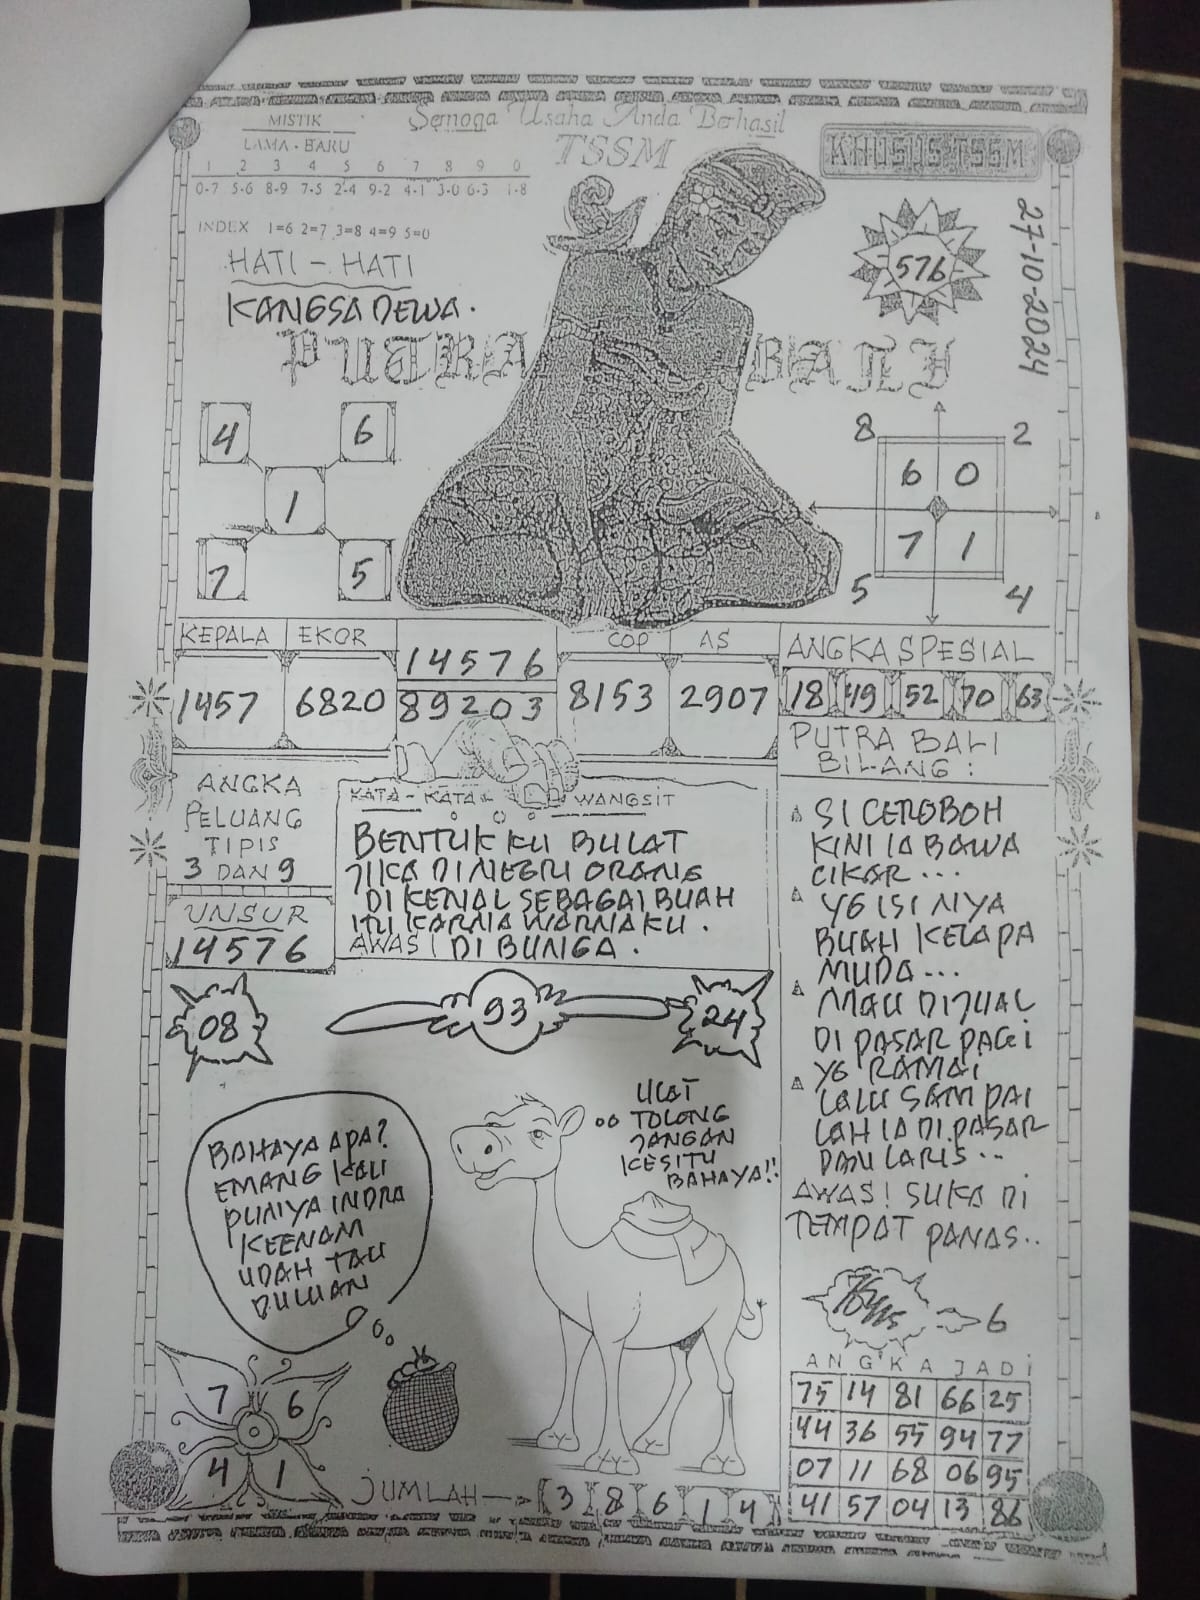 MISTIK
LAMA - BARU
1 2 3 4 5 6 7 8 9 0
0-7 5-6 8-9 7-5 2-4 9-2 4-1 3-0 6-3 1-8
INDEX 1=6 2=7 3=8 4=9 5=0
HATI - HATI
KANGSA DEWA.
Semoga Usaha Anda Berhasil
TSSM
KHUSUS TSSM
576
27-10-2024
PUTRA BALI
4 6
1
7 5
8 2
6 0
7 1
5 4
KEPALA EKOR
1457 6820
14576
89203
COP AS
8153 2907
ANGKA SPESIAL
18 49 52 70 63
ANGKA
PELUANG
TIPIS
3 DAN 9
UNSUR
14576
KATA - KATA WANGSIT
BENTUK KU BULAT
JIKA DI NEGRI ORANG
DI KENAL SEBAGAI BUAH
ITU KARNA WARNAKU.
AWAS! DI BUNGA.
PUTRA BALI
BILANG :
SI CEROBOH
KINI IA BAWA
CIKAR ...
YG ISI NYA
BUAH KELAPA
MUDA ...
MAU DIJUAL
DI PASAR PAGI
YG RAMAI
LALU SAMPAI
LAH IA DI PASAR
DAN LARIS ..
AWAS! SUKA DI
TEMPAT PANAS..
08
93
24
BAHAYA APA?
EMANG KAU
PUNYA INDRA
KEENAM
UDAH TAU
DULUAN
ULAT
TOLONG
JANGAN
KESITU
BAHAYA!!
6
7 6
4 1
JUMLAH
3 8 6 1 4
ANGKA JADI
75 14 81 66 25
44 36 55 94 77
07 11 68 06 95
41 57 04 13 86